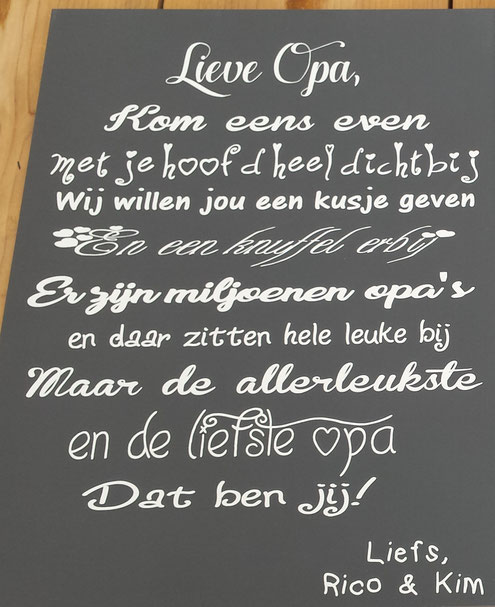 Lieve Opa,
Kom eens even
met je hoofd heel dichtbij
Wij willen jou een kusje geven
En een knuffel erbij
Er zijn miljoenen opa's
en daar zitten hele leuke bij
Maar de allerleukste
en de liefste opa
Dat ben jij!
Liefs,
Rico & Kim